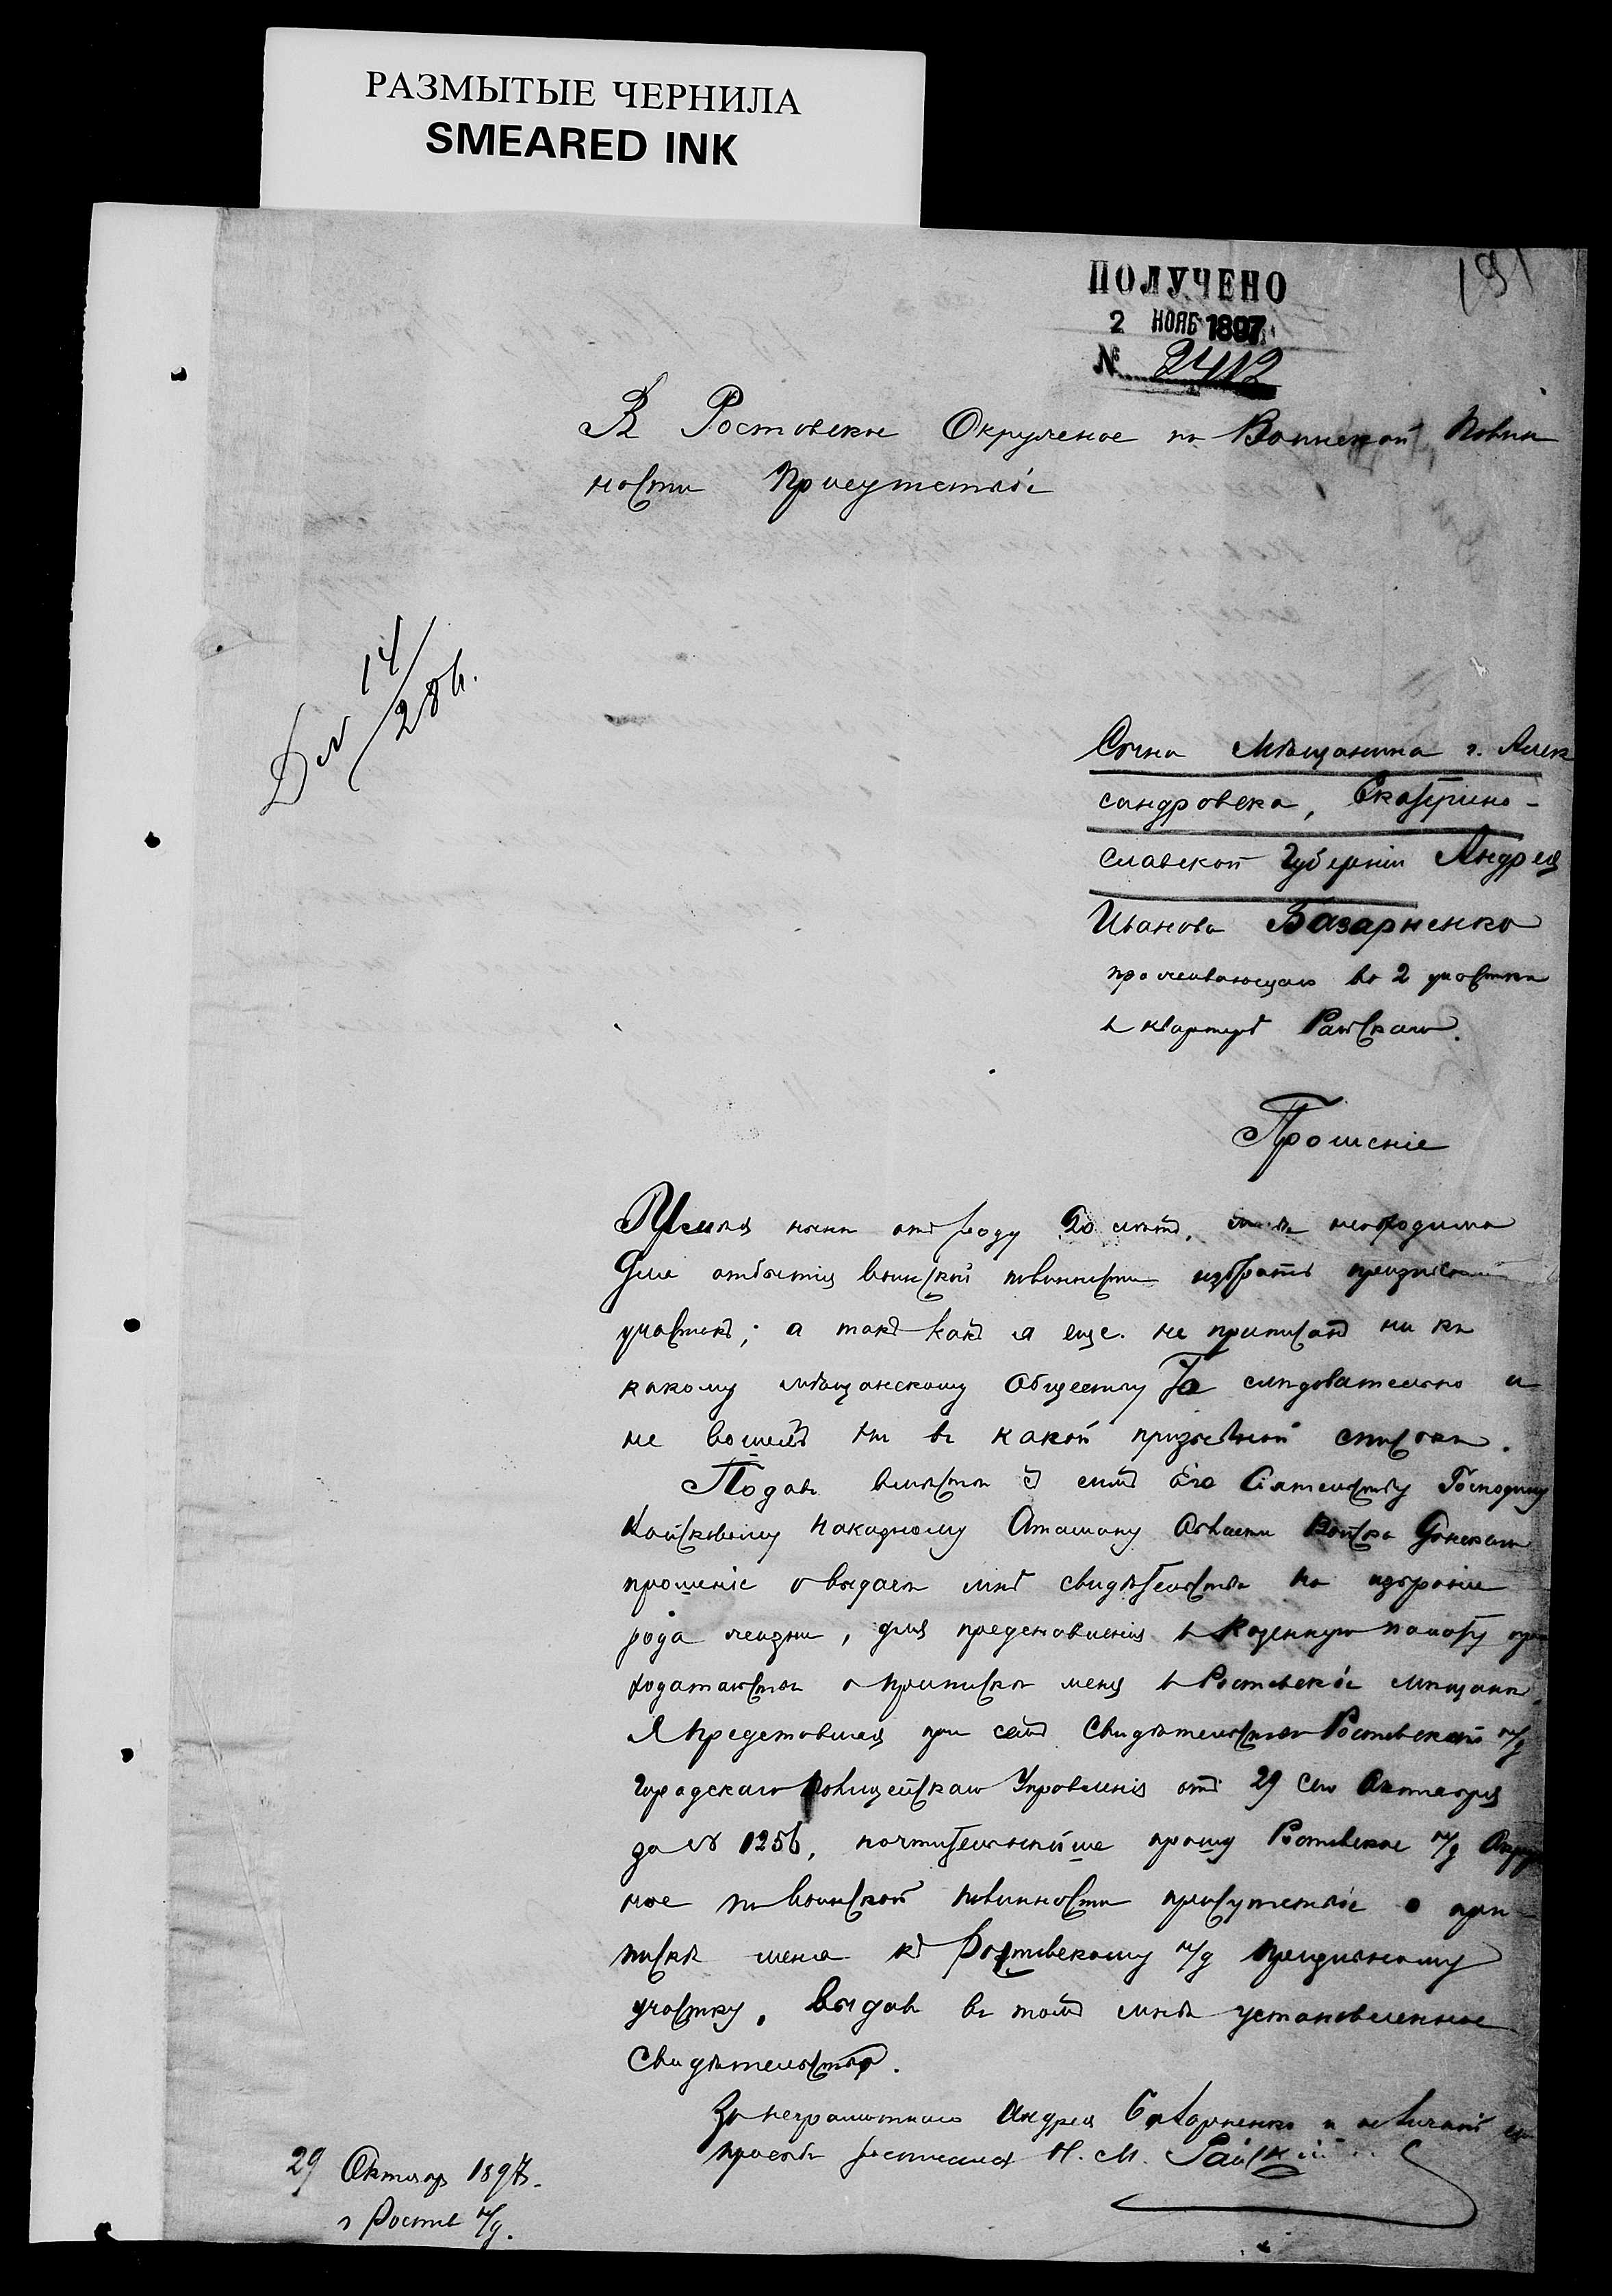 РАЗМЫТЫЕ ЧЕРНИЛА
SMEARED INK
191
ПОЛУЧЕНО
2 НОЯБ 1897
№ 2412
В Ростовское Окружное по Воинской Повин
ности Присутствіе
14/286.
Сына Мѣщанина г. Алек
сандровска, Екатерино-
славской Губерніи Андрея
Иванова Базарненко
проживающаго во 2 участкѣ
в квартирѣ Райскаго.
Прошеніе
Имѣя нынѣ отъ роду 20 лѣтъ, мнѣ необходимо
для отбытія воинской повинности избрать призывной
участокъ; а такъ какъ я еще не приписанъ ни къ
какому мѣщанскому обществу то слѣдовательно и
не вошелъ ни въ какой призывной списокъ.
Подавъ вмѣстѣ съ симъ Его Сіятельству Господину
Войсковому Наказному Атаману Области Войска Донскаго
прошеніе о выдачѣ мнѣ свидѣтельства на избраніе
рода жизни, для представленія в Казенную палату при
ходатайствѣ о припискѣ меня в Ростовскіе мѣщане.
Я представляя при семъ Свидѣтельство Ростовскаго н/д
Городскаго Полицейскаго Управленія отъ 29 сего Октября
за № 1256, почтительнѣйше прошу Ростовское н/д Окруж
ное по воинской повинности присутствіе о при-
пискѣ меня къ Ростовскому н/д призывному
участку, выдавъ въ томъ мнѣ установленное
Свидѣтельство.
За неграмотнаго Андрея Базарненко и по личной его
просьбѣ росписался Н. М. Райскій
29 Октября 1897.
г Ростов н/д.